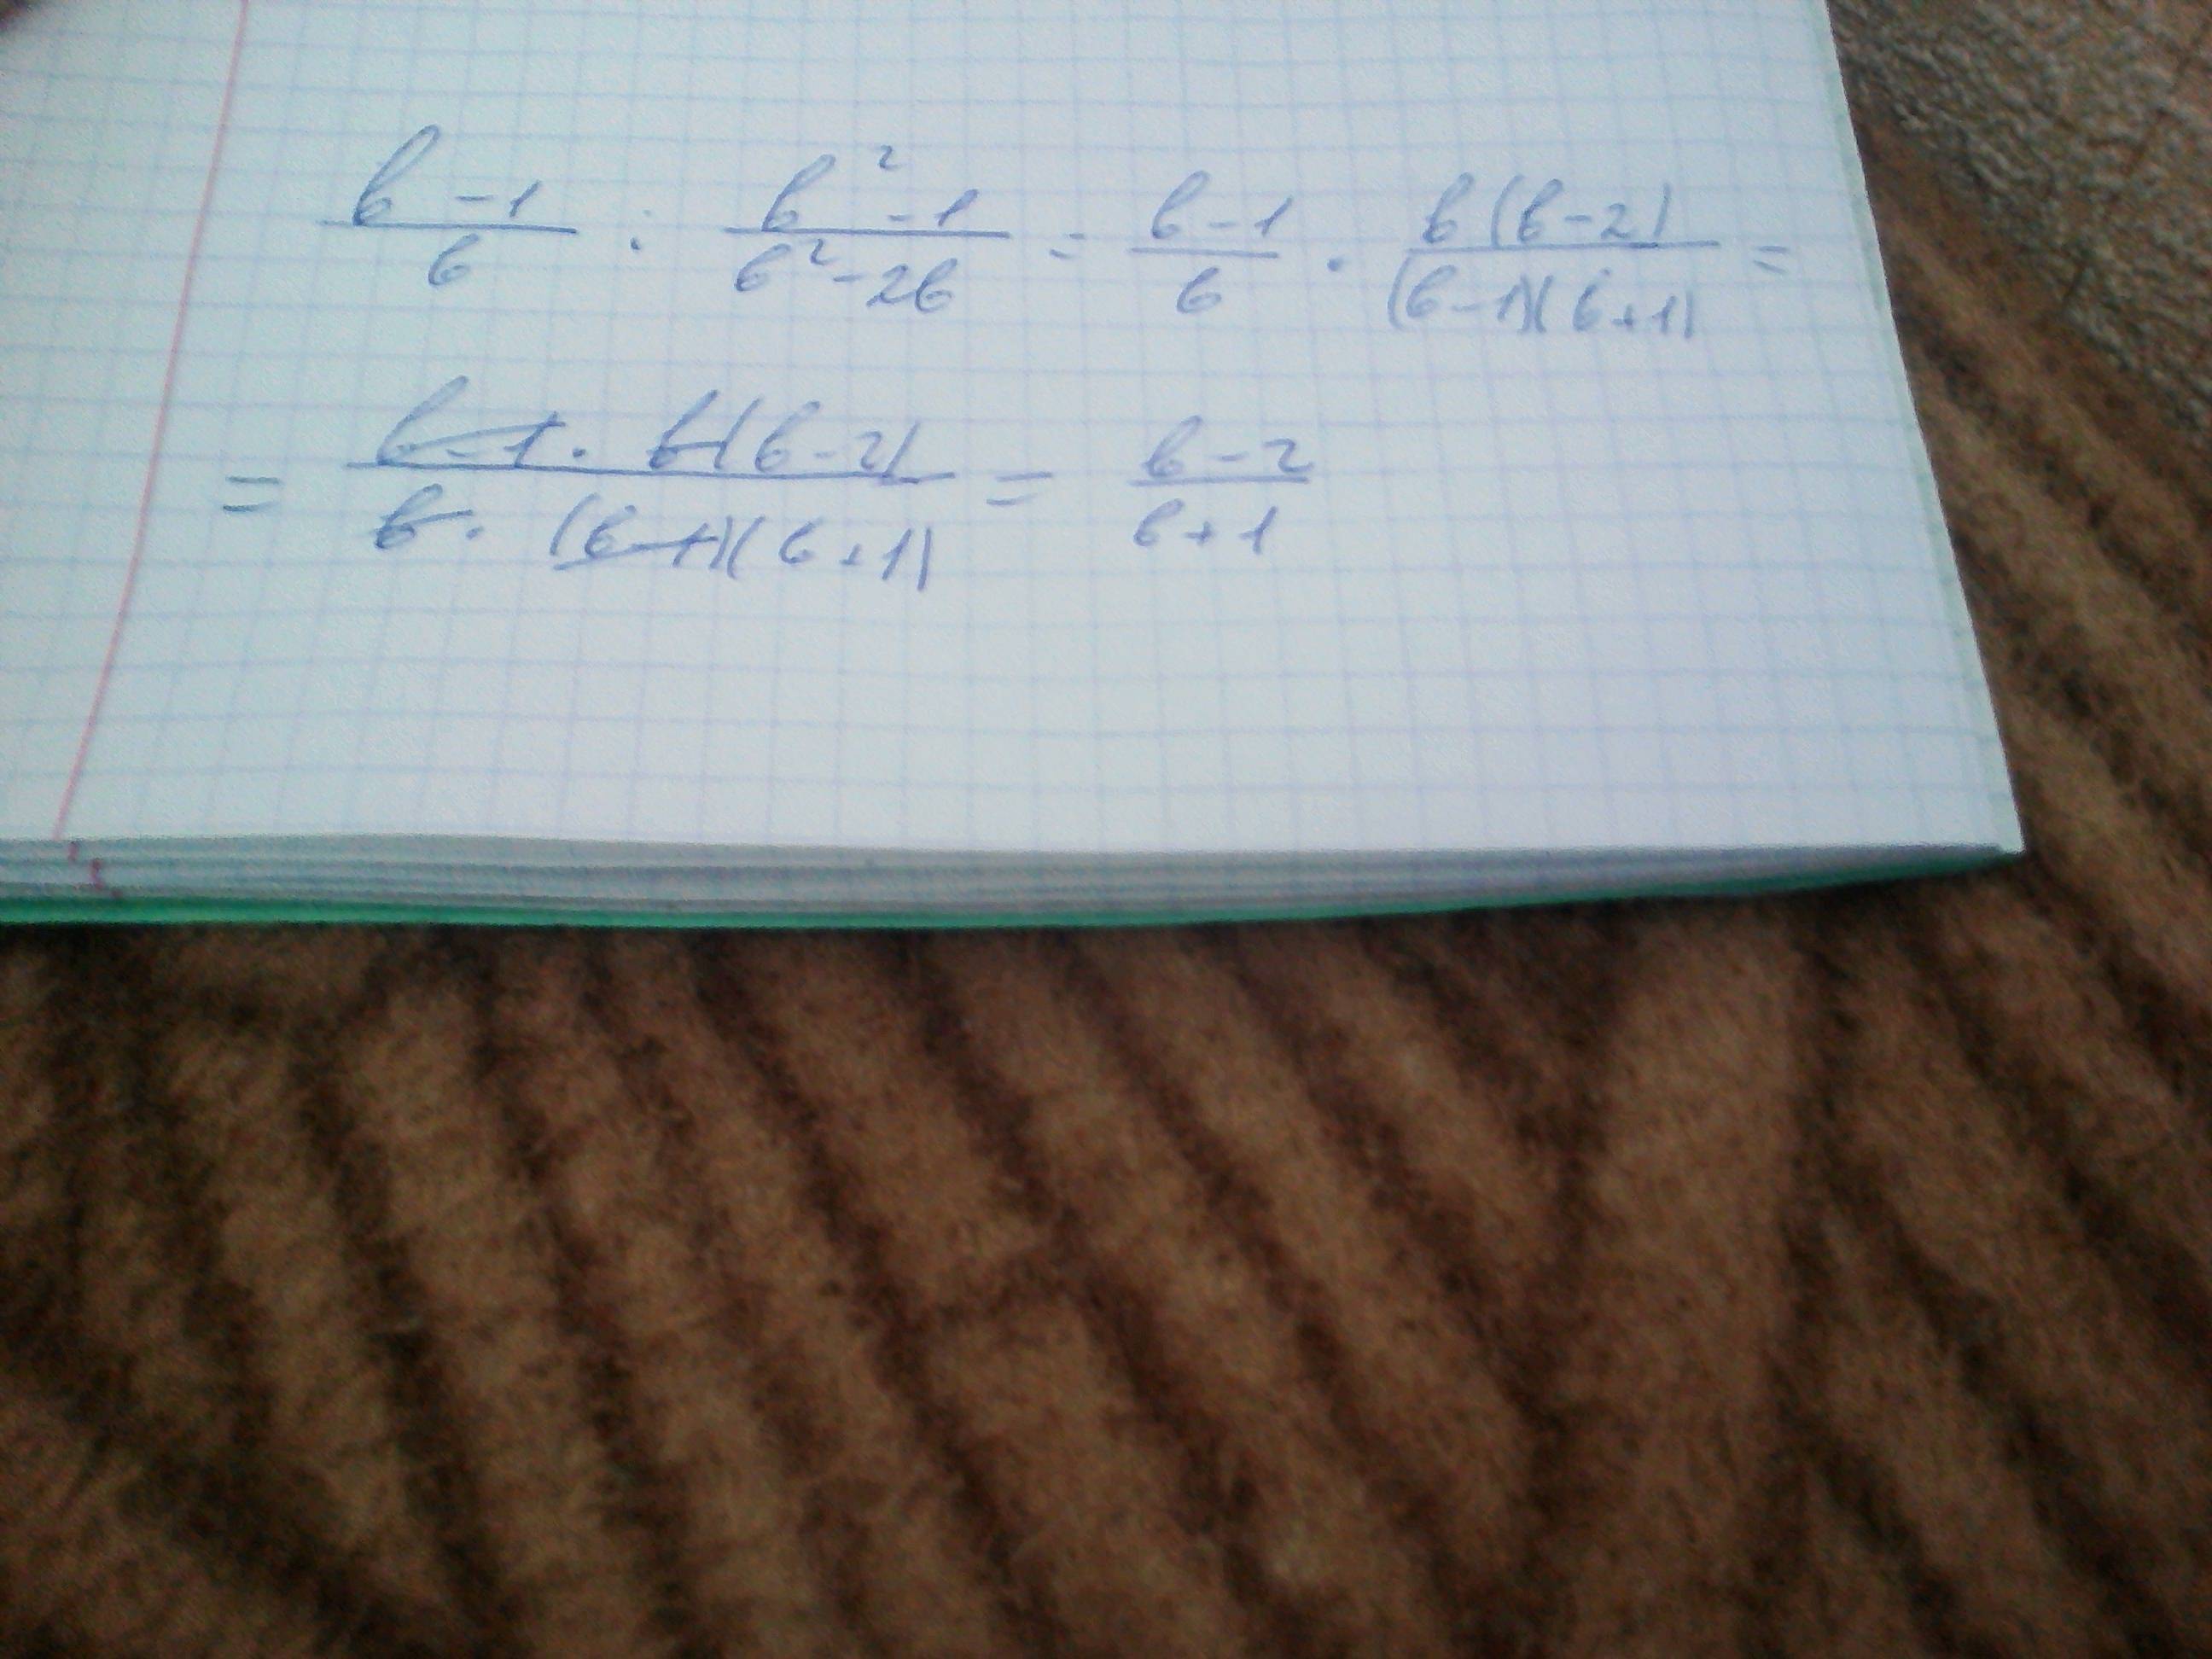 (b-1)/b : (b²-1)/(b²-2b) = (b-1)/b · b(b-2)/((b-1)(b+1)) =
= (b-1 · b(b-2))/(b · (b-1)(b+1)) = (b-2)/(b+1)